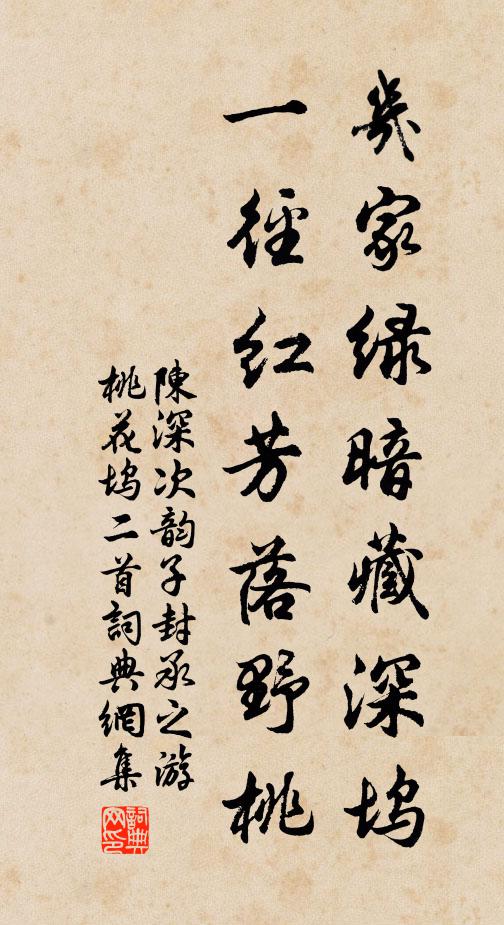 幾家绿暗藏深坞
一徑红芳落野桃
陳深次韵子封承之游
桃花坞二首詞典網集
詞典
网印